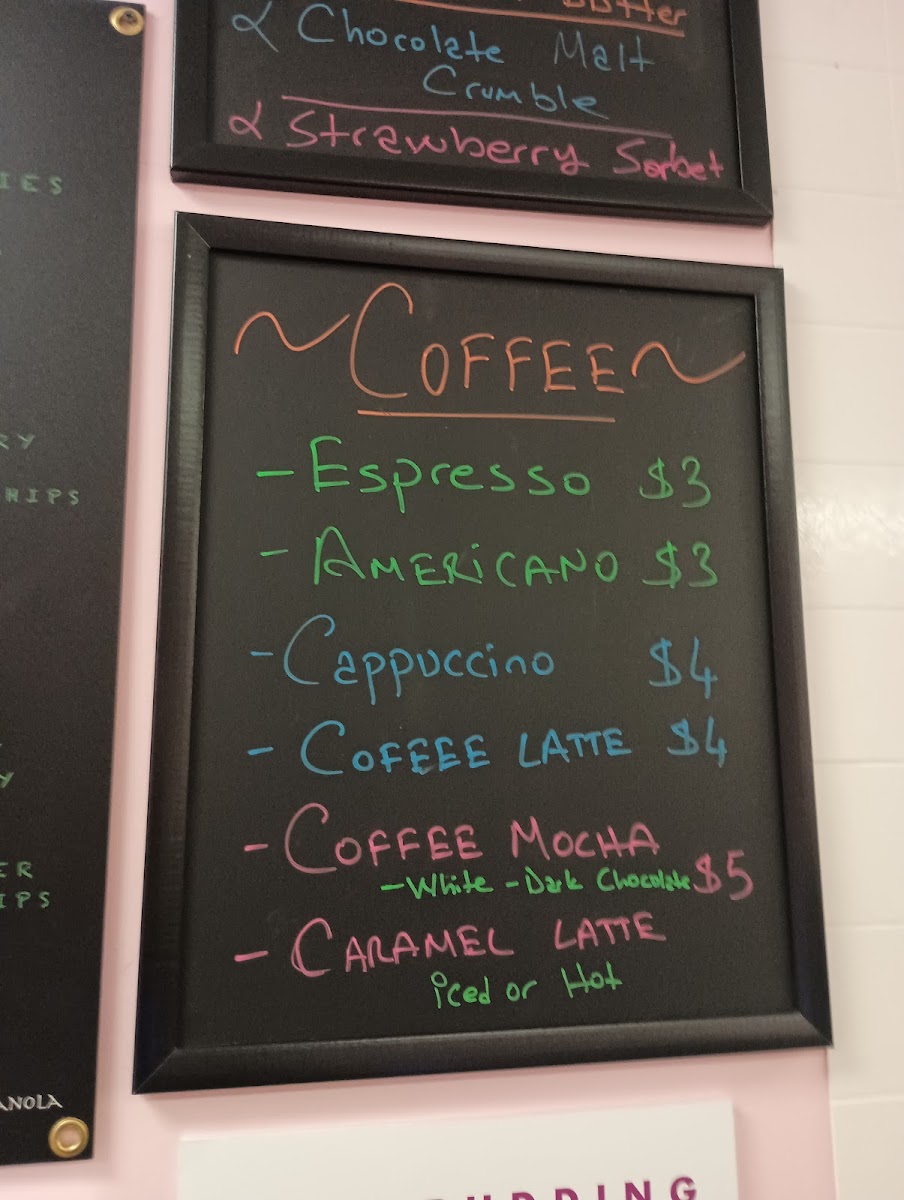 Chocolate Malt
Crumble
Strawberry Sorbet
~COFFEE~
- Espresso $3
- AMERiCANO $3
- Cappuccino $4
- COFEEE LATTE $4
- COFFEE MOCHA
- White - Dark Chocolate $5
- CARAMEL LATTE
iced or Hot